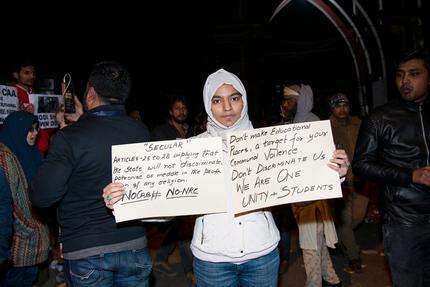 CAA
"SECULAR"
ARTICLES-25 TO 28 implying that
the state will not discriminate,
patronise or meddle in the profe
of any religion.
NO CAB# NO-NRC
Don't make Educational
Places, a target for your
Communal Violence.
Don't Discriminate Us
WE ARE ONE
UNITY + STUDENTS